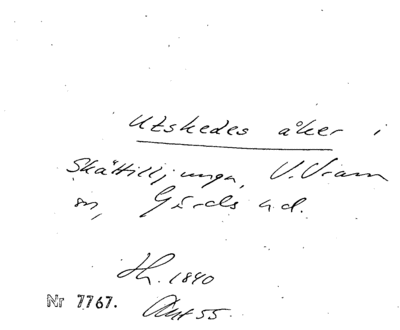 Utskedes åker i
Skättilljunga, V. Vram
sn, Gärds hd.
Lh. 1840
Akt 55.
Nr 7767.